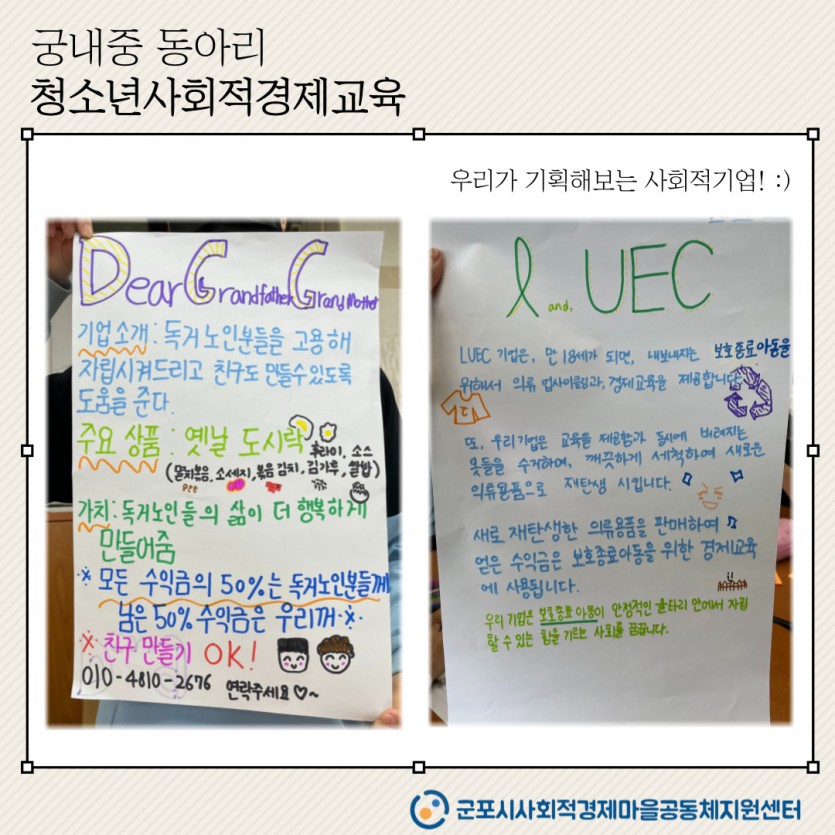 궁내중 동아리
청소년사회적경제교육
우리가 기획해보는 사회적기업! :)
Dear Grandfather Grand Mother
기업 소개 : 독거 노인분들을 고용해
자립시켜드리고 친구도 만들수 있도록
도움을 준다.
주요 상품 : 옛날 도시락
후라이, 소스
(멸치볶음, 소세지, 볶음 김치, 김가루, 쌀밥)
가치 : 독거노인들의 삶이 더 행복하게
만들어줌
※ 모든 수익금의 50%는 독거노인분들께
남은 50% 수익금은 우리꺼 ※
※ 친구 만들기 OK!
010-4810-2676 연락주세요♡~
l and, UEC
LUEC 기업은, 만 18세가 되면, 내보내지는 보호종료아동을
위해서 의류 업사이클링과, 경제교육을 제공합니다.
또, 우리기업은 교육을 제공함과 동시에 버려지는
옷들을 수거하여, 깨끗하게 세척하여 새로운
의류용품으로 재탄생 시킵니다.
새로 재탄생한 의류용품을 판매하여
얻은 수익금은 보호종료아동을 위한 경제교육
에 사용됩니다.
우리 기업은 보호종료 아동이 안정적인 울타리 안에서 자립
할 수 있는 힘을 기르는 사회를 꿈꿉니다.
군포시사회적경제마을공동체지원센터